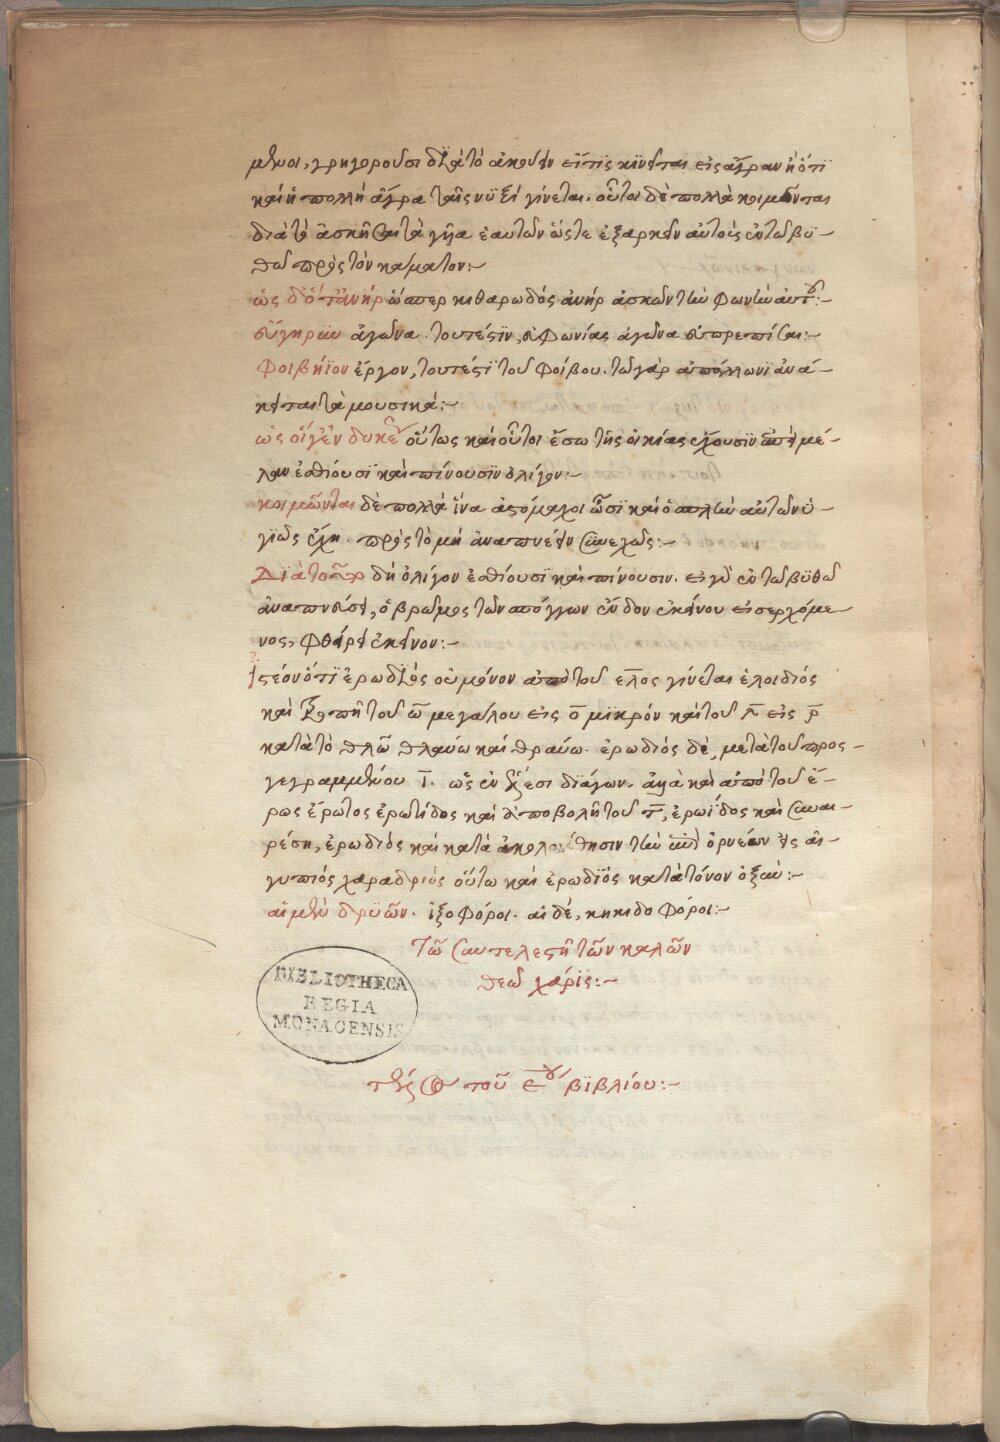 μενοι, γρηγοροῦσι διὰ τὸ ἀκούειν εἴ τις κινεῖται εἰς ἄγραν ἢ ὅτι
καὶ ἡ πολλὴ ἄγρα ταῖς νυξὶ γίνεται. οὗτοι δὲ πολλὰ κοιμῶνται
διὰ τὸ ἀσκῆσαι τὰ γυῖα ἑαυτῶν ὥστε ἐξαρκεῖν αὐτοῖς ἐν τῷ βυ-
θῷ πρὸς τὸν κάματον:-
ὡς δ' ὅτ' ἀνήρ ὥσπερ κιθαρωδὸς ἀνὴρ ἀσκῶν τὴν φωνὴν αὐτοῦ:-
εὔγηρυν ἀγῶνα. τουτέστιν, εὐφωνίας ἀγῶνα εὐπρεπίσαι:-
Φοιβήϊον ἔργον, τουτέστι τοῦ Φοίβου. τῷ γὰρ ἀπόλλωνι ἀνά-
κειται τὰ μουσικά:-
ὡς οἵγ' ἐνδυκὲς οὕτως καὶ οὗτοι ἔσω τῆς οἰκίας ἔχουσιν
ἐσθίουσι καὶ πίνουσιν ὀλίγον:-
κοιμῶνται δὲ πολλὰ ἵνα ὦσι καὶ ὁ αὐτῶν ὑ-
γιῶς ἔχη. πρὸς τὸ μὴ ἀναπνέειν συνεχῶς:-
Διὰ τοῦτο δὴ ὀλίγον ἐσθίουσι καὶ πίνουσιν. εἰ γὰρ ἐν τῷ βυθῷ
ἀναπνεύσει, ὁ βρῶμος τῶν σπόγγων ἔνδον ἐκείνου εἰσερχόμε
νος, φθείρει ἐκεῖνον:-
ἰστέον ὅτι ἐρωδιὸς οὐ μόνον ἀπὸ τοῦ ἕλος γίνεται ἑλοιδιός
καὶ τροπῆ τοῦ ω μεγάλου εἰς ο μικρὸν καὶ τοῦ λ εἰς ρ
κατὰ τὸ θλῶ θλαύω καὶ θραύω. ἐρωδιὸς δὲ, μετὰ τοῦ προς-
γεγραμμένου ι. ὡς ἐν ἕλεσι διάγων. ἀλλὰ καὶ ἀπὸ τοῦ ἔ-
ρως ἔρωτος ἐρωτίδος καὶ ἀποβολῆ τοῦ τ, ἐρωΐδος καὶ συναι-
ρέσει, ἐρωδιός καὶ κατὰ ἀκολούθησιν τῶν ὀρνέων ὡς αἰ-
γυπιός χαραδριός οὕτω καὶ ἐρωδιός κατὰ τόνον ὀξύν:-
αἱ μὲν δρυῶν. ἰξοφόροι. αἱ δὲ, κηκιδοφόροι:-
Τῷ συντελεστῆ τῶν καλῶν
θεῷ χάρις:-
BIBLIOTHECA
REGIA
MONACENSIS
τέλος τοῦ ε΄ου βιβλίου:-